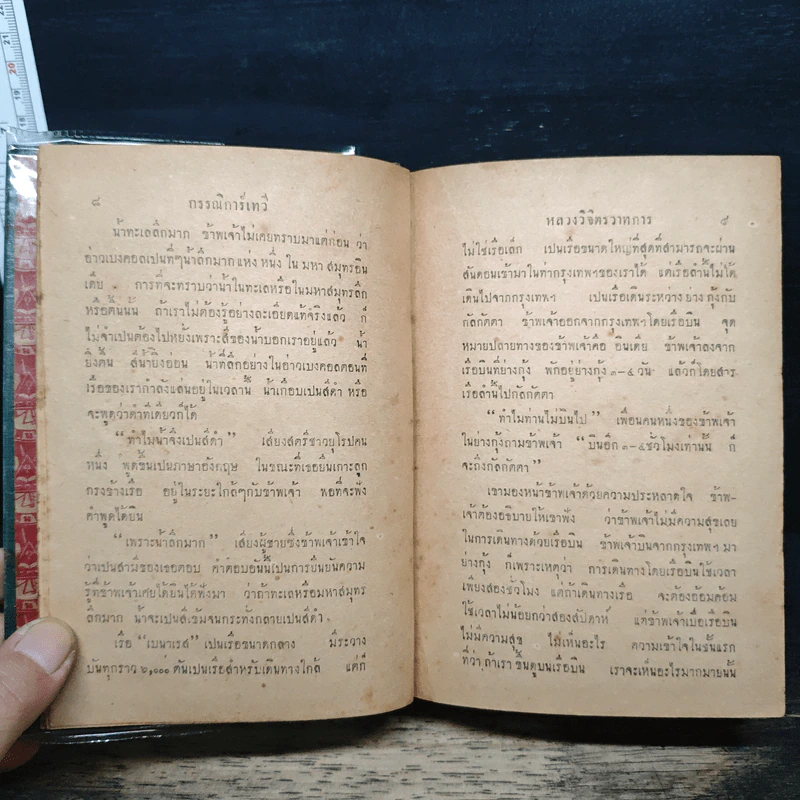 ๘ กรรณิการ์เทวี
น้ำทะเลลึกมาก ข้าพเจ้าไม่เคยทราบมาแต่ก่อน ว่า
อ่าวเบงคอลเปนที่ๆน้ำลึกมากแห่งหนึ่งในมหาสมุทรอิน
เดีย การที่จะทราบว่าน้ำในทะเลหรือในมหาสมุทรลึก
หรือตื้นนั้น ถ้าเราไม่ต้องรู้อย่างละเอียดแท้จริงแล้ว ก็
ไม่จำเปนต้องไปหยั่งเพราะสีของน้ำบอกเราอยู่แล้ว น้ำ
ยิ่งตื้น สีน้ำยิ่งอ่อน น้ำที่ลึกอย่างในอ่าวเบงคอลตอนที่
เรือของเรากำลังแล่นอยู่ในเวลานี้ น้ำเกือบเปนสีดำ หรือ
จะพูดว่าดำทีเดียวก็ได้
“ทำไมน้ำจึงเปนสีดำ” เสียงสตรีชาวยุโรปคน
หนึ่ง พูดขึ้นเปนภาษาอังกฤษ ในขณะที่เธอยืนเกาะลูก
กรงข้างเรือ อยู่ในระยะใกล้ๆกับข้าพเจ้า พอที่จะฟัง
คำพูดได้ยิน
“เพราะน้ำลึกมาก” เสียงผู้ชายซึ่งข้าพเจ้าเข้าใจ
ว่าเปนสามีของเธอตอบ คำตอบอันนี้เปนการยืนยันความ
รู้ที่ข้าพเจ้าเคยได้ยินได้ฟังมา ว่าถ้าทะเลหรือมหาสมุทร
ลึกมาก น้ำจะเปนสีเข้มจนกระทั่งกลายเปนสีดำ
เรือ “เบนาเรส” เปนเรือขนาดกลาง มีระวาง
บันทุกราว ๖,๐๐๐ ตันเปนเรือสำหรับเดินทางใกล้ แต่ก็
หลวงวิจิตรวาทการ ๙
ไม่ใช่เรือเล็ก เปนเรือขนาดใหญ่ที่สุดที่สามารถจะผ่าน
สันดอนเข้ามาในท่ากรุงเทพฯของเราได้ แต่เรือลำนี้ไม่ได้
เดินไปจากกรุงเทพฯ เปนเรือเดินระหว่างย่างกุ้งกับ
กัลกัตตา ข้าพเจ้าออกจากกรุงเทพฯโดยเรือบิน จุด
หมายปลายทางของข้าพเจ้าคือ อินเดีย ข้าพเจ้าลงจาก
เรือบินที่ย่างกุ้ง พักอยู่ย่างกุ้ง ๓-๔ วัน แล้วก็โดยสาร
เรือลำนี้ไปกัลกัตตา
“ทำไมท่านไม่บินไป” เพื่อนคนหนึ่งของข้าพเจ้า
ในย่างกุ้งถามข้าพเจ้า “บินอีก ๓-๔ ชั่วโมงเท่านั้น ก็
จะถึงกัลกัตตา”
เขามองหน้าข้าพเจ้าด้วยความประหลาดใจ ข้าพ-
เจ้าต้องอธิบายให้เขาฟัง ว่าข้าพเจ้าไม่มีความสุขเลย
ในการเดินทางด้วยเรือบิน ข้าพเจ้าบินจากกรุงเทพฯมา
ย่างกุ้ง ก็เพราะเหตุว่า การเดินทางโดยเรือบินใช้เวลา
เพียงสองชั่วโมง แต่ถ้าเดินทางเรือ จะต้องอ้อมค้อม
ใช้เวลาไม่น้อยกว่าสองสัปดาห์ แต่ข้าพเจ้าเบื่อเรือบิน
ไม่มีความสุข ไม่เห็นอะไร ความเข้าใจในชั้นแรก
ที่ว่า ถ้าเราขึ้นดูบนเรือบิน เราจะเห็นอะไรมากมายนั้น